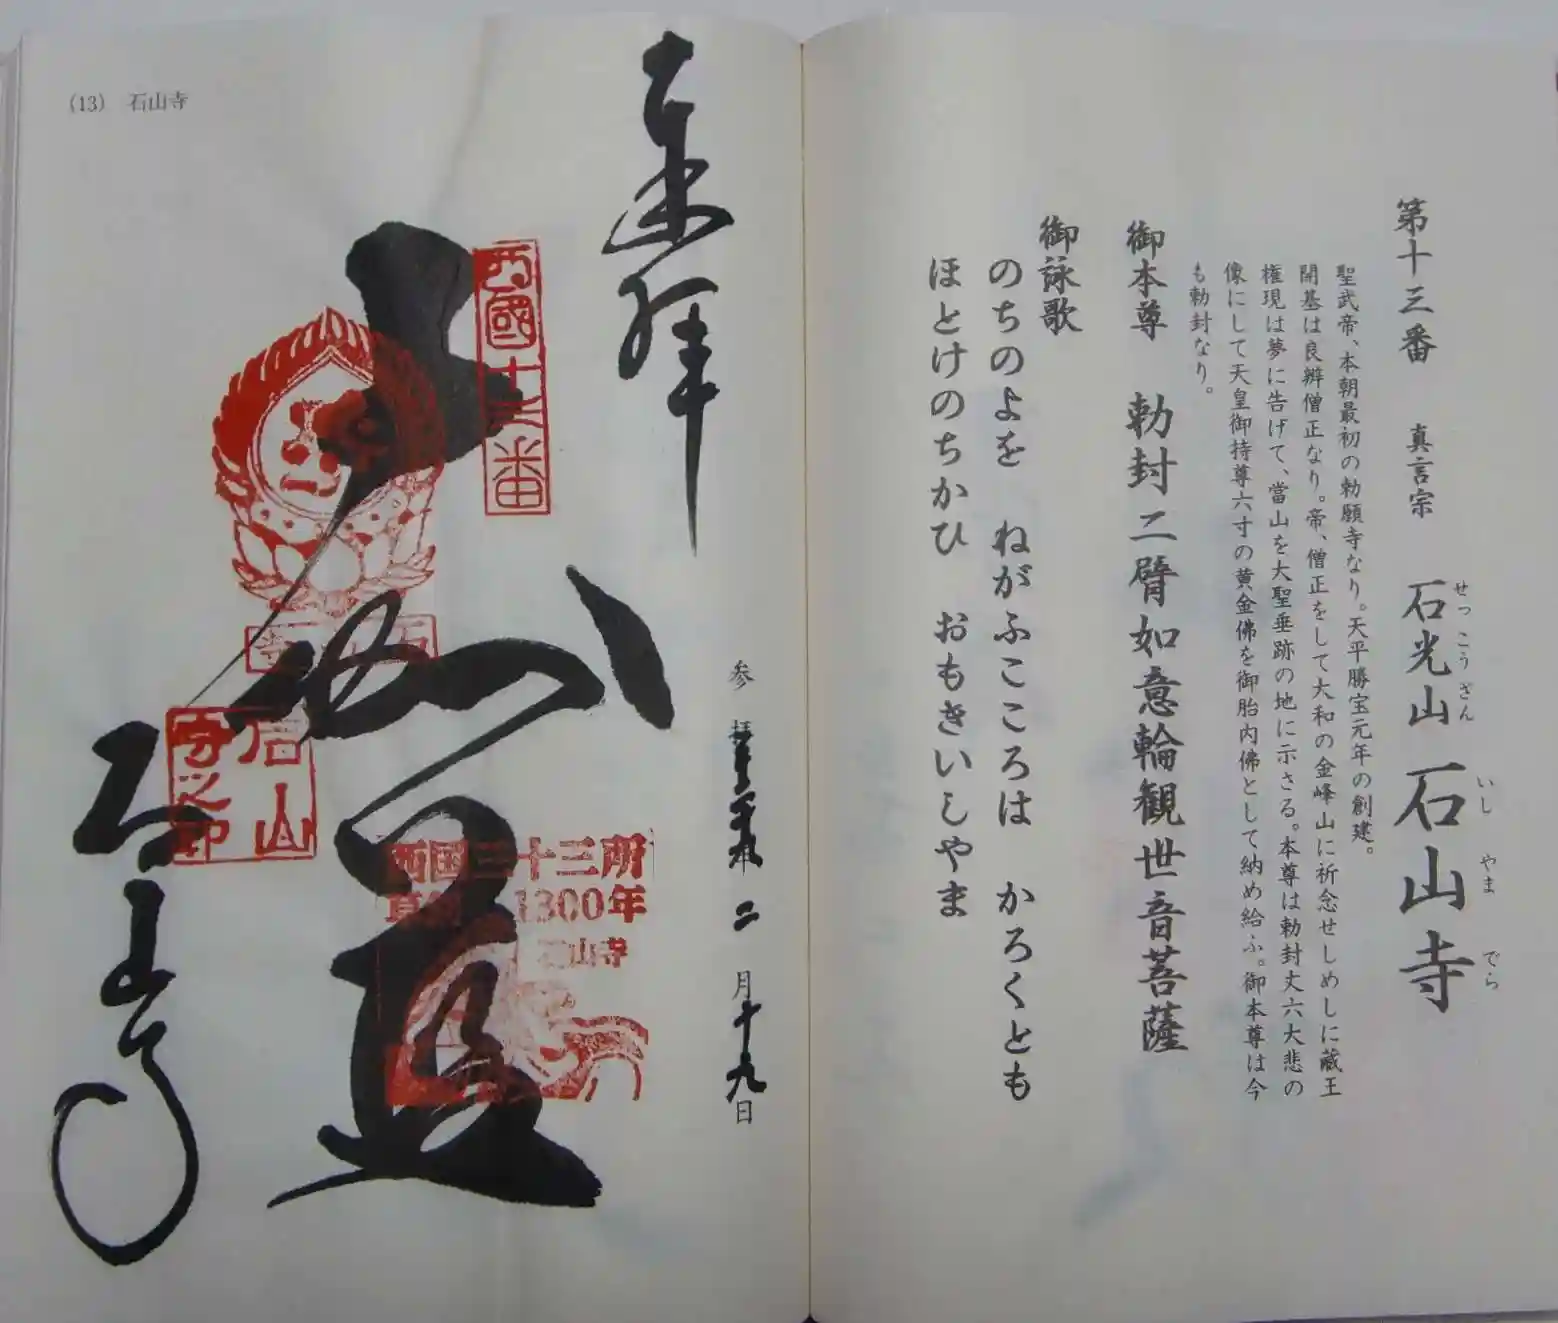 第十三番 真言宗 石光山 石山寺
せっこうざん いしやまでら
聖武帝、本朝最初の勅願寺なり。天平勝宝元年の創建。
開基は良辨僧正なり。帝、僧正をして大和の金峰山に祈念せしめしに蔵王
権現は夢に告げて、當山を大聖垂跡の地に示さる。本尊は勅封丈六大悲の
像にして天皇御持尊六寸の黄金佛を御胎内佛として納め給ふ。御本尊は今
も勅封なり。
御本尊 勅封二臂如意輪観世音菩薩
御詠歌
のちのよを ねがふこころは かろくとも
ほとけのちかひ おもきいしやま
(13) 石山寺
奉拝
西國十三番
石山寺
石山寺之印
西国三十三所
1300年
石山寺
参拝 二月十九日
石山寺